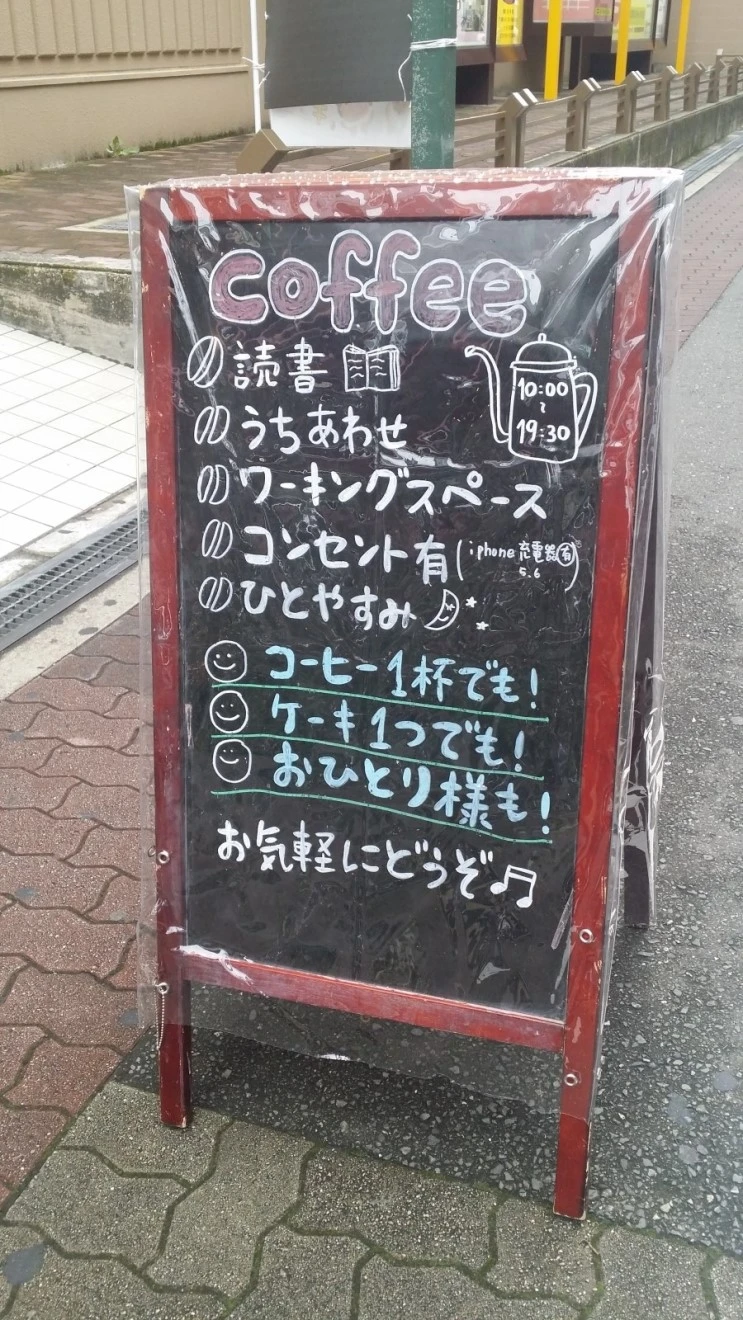 coffee
読書
10:00
~
19:30
うちあわせ
ワーキングスペース
コンセント有(iphone充電器有)
5.6
ひとやすみ
コーヒー1杯でも!
ケーキ1つでも!
おひとり様も!
お気軽にどうぞ♫